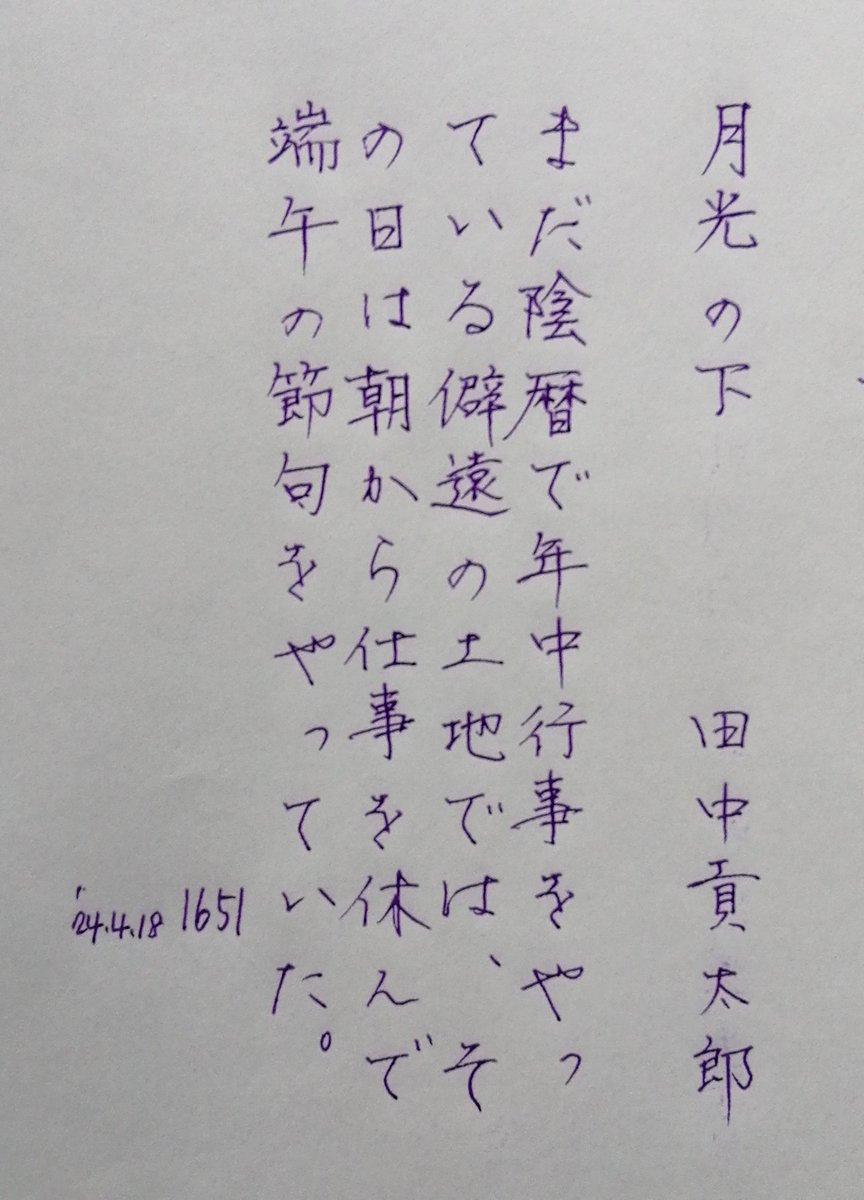 月光の下　田中貢太郎
まだ陰暦で年中行事をやっ
ている僻遠の土地では、そ
の日は朝から仕事を休んで
端午の節句をやっていた。
'24.4.18 1651